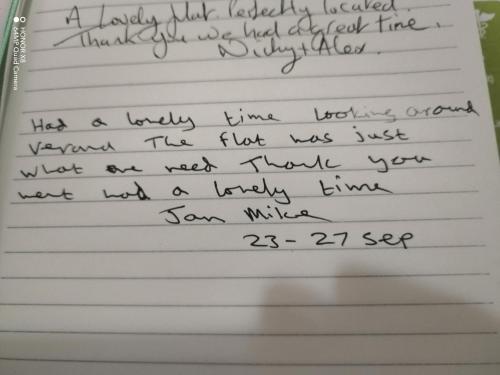 A lovely flat. Perfectly located.
Thank you we had a great time.
Nicky + Alex.
Had a lovely time looking around
Verand The flat was just
what need Thank you
had a lovely time
Jan Mike
23 - 27 Sep
HONOR X8
64MP Quad Camera